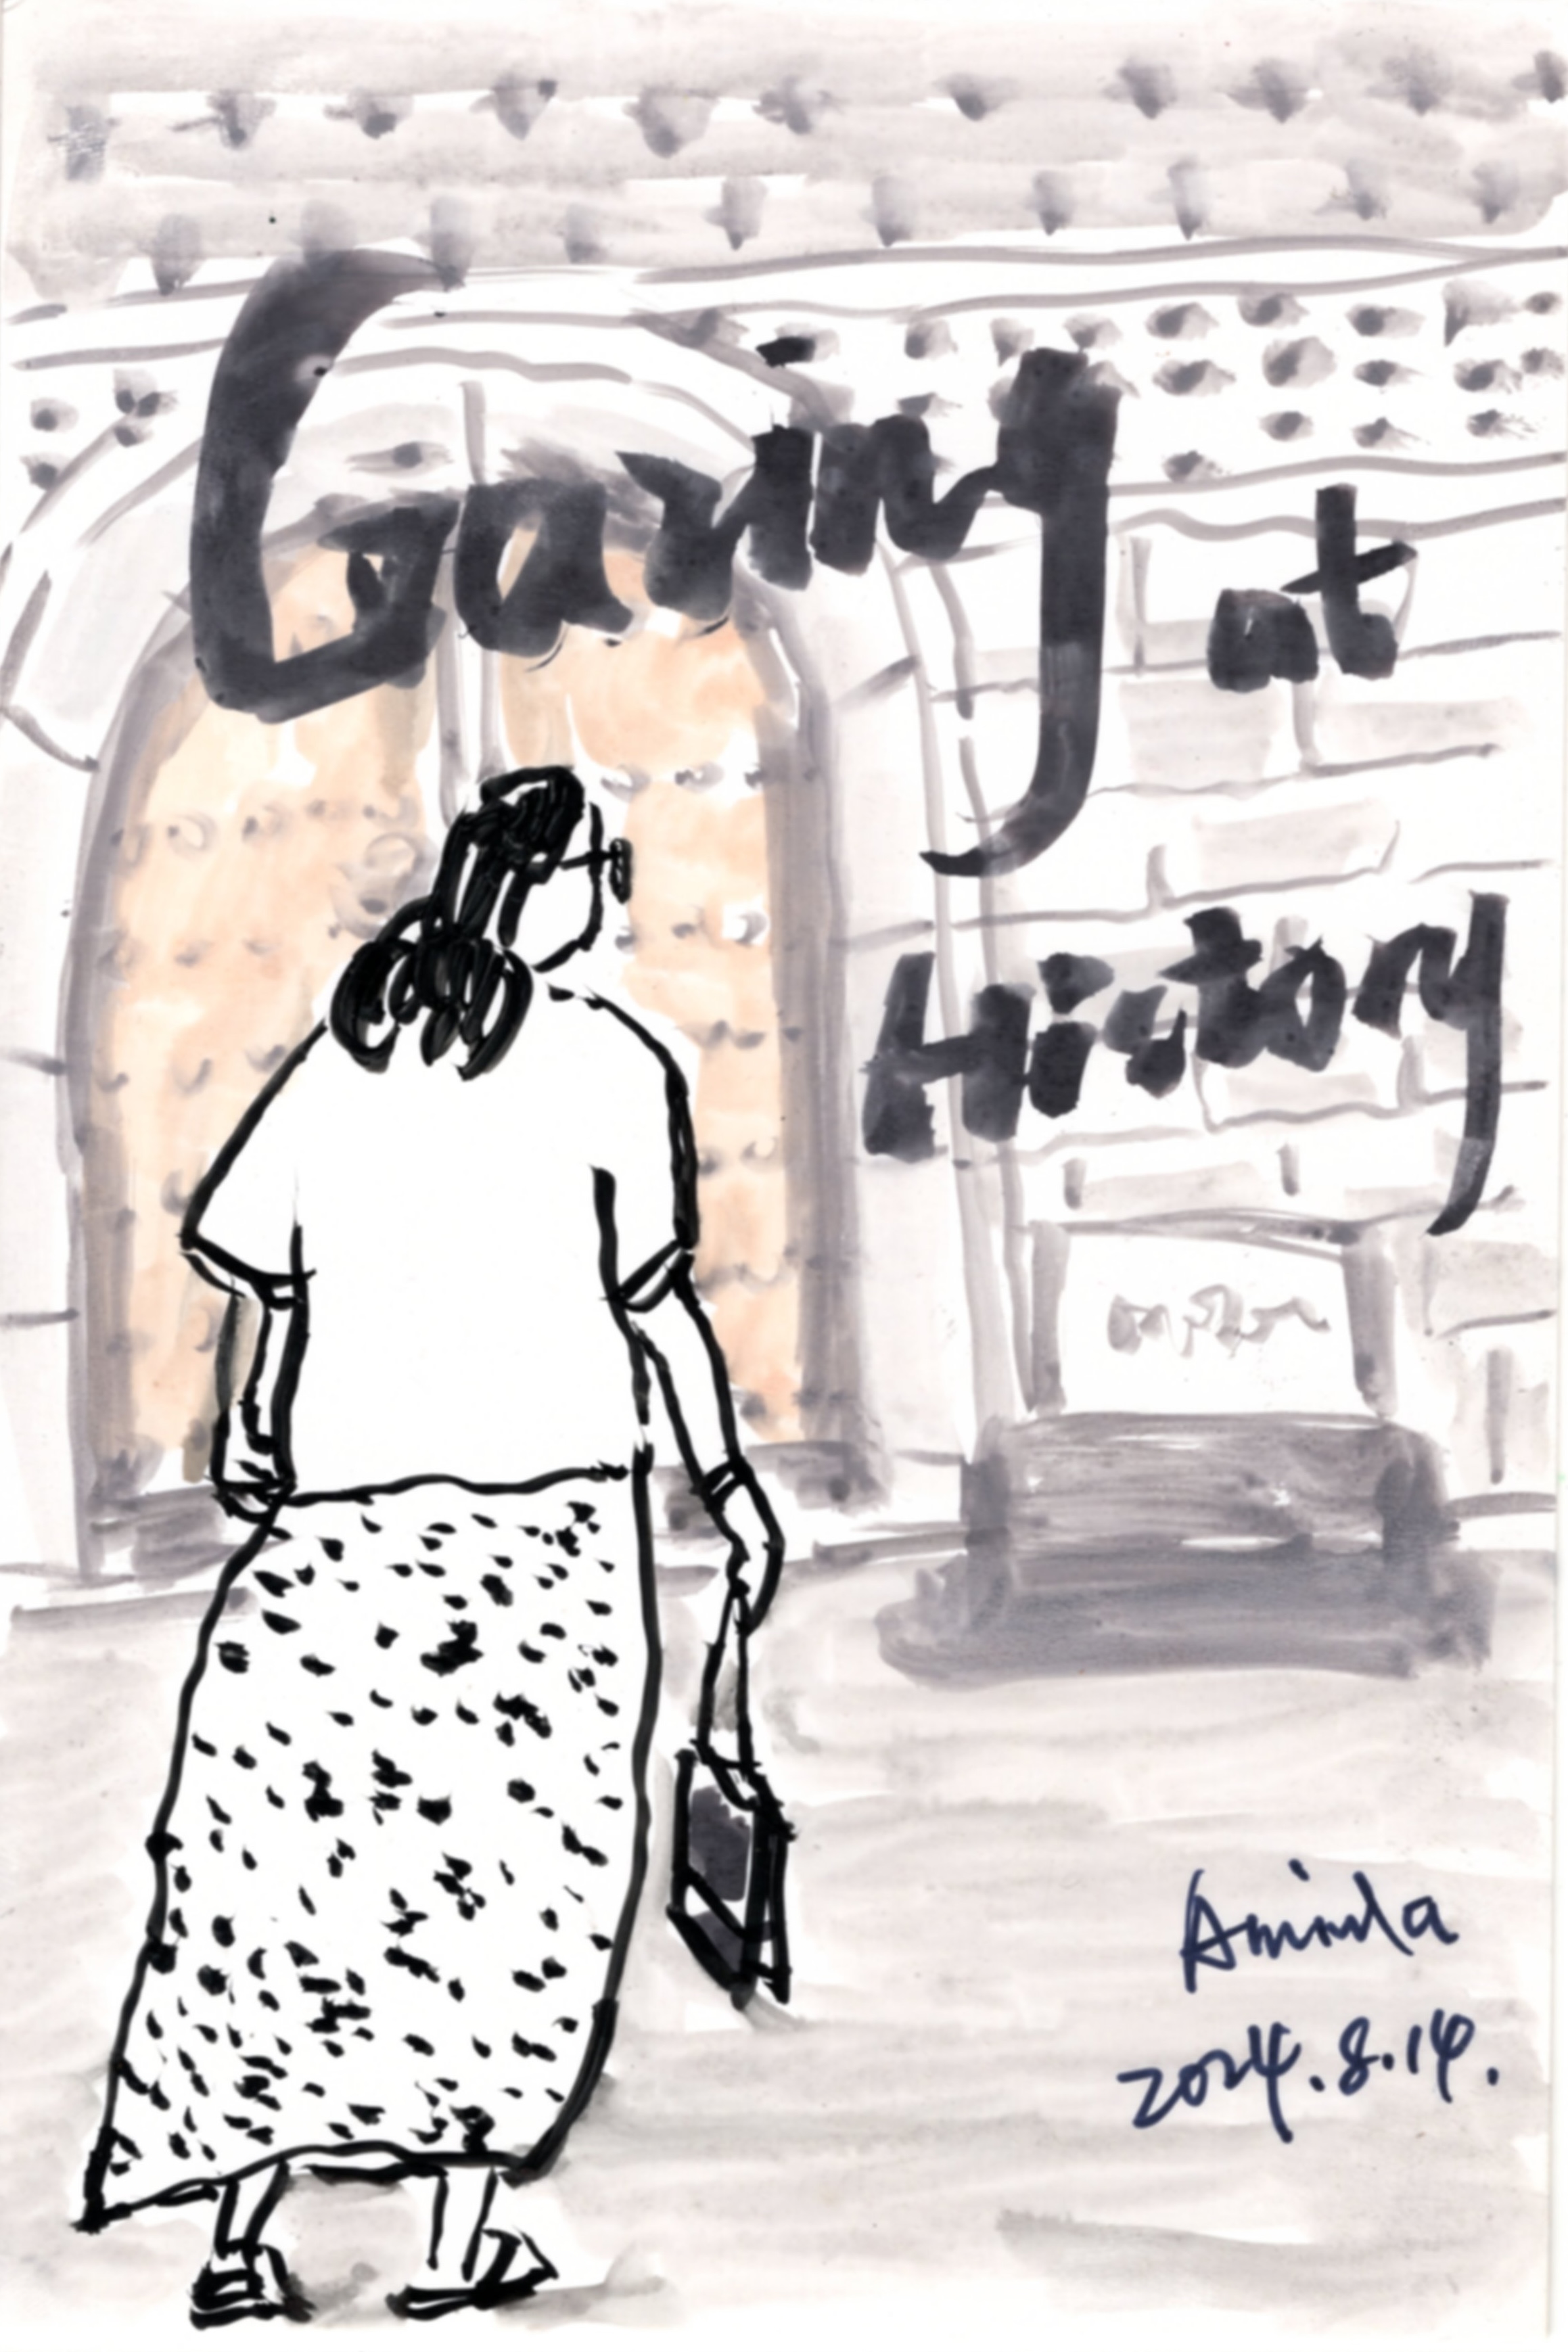 Gazing
at
History
Aminda
2024.8.14.